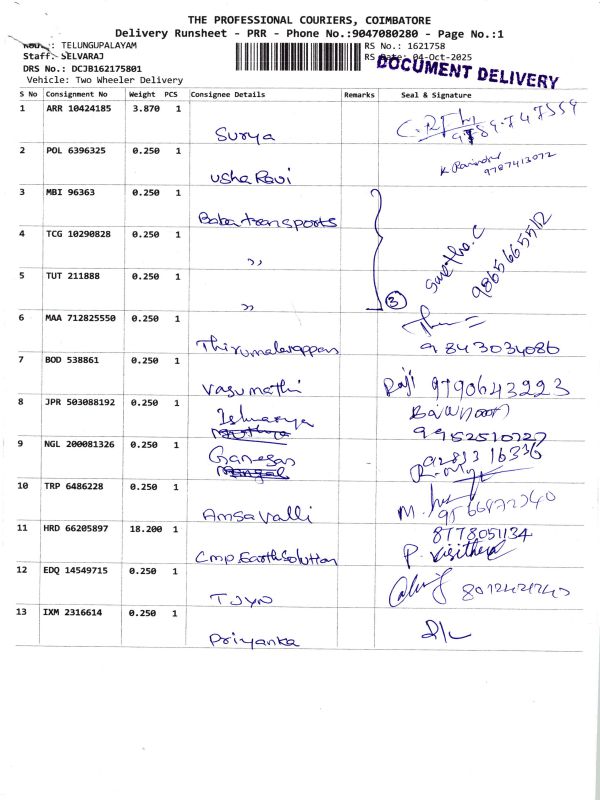 THE PROFESSIONAL COURIERS, COIMBATORE
Delivery Runsheet - PRR - Phone No.:9047080280 - Page No.:1
TELUNGUPALAYAM RS No.: 1621758
Staff: SELVARAJ RS 04-Oct-2025
DOCUMENT DELIVERY
DRS No.: DCJB162175801
Vehicle: Two Wheeler Delivery
S No Consignment No Weight PCS Consignee Details Remarks Seal & Signature
1 ARR 10424185 3.870 1
Surya
2 POL 6396325 0.250 1
Usha Ravi 9787413072
3 MBI 96363 0.250 1
Baba transports
4 TCG 10290828 0.250 1
,, 9865665512
5 TUT 211888 0.250 1
,, 3
6 MAA 712825550 0.250 1
Thirumalarappan 9843034086
7 BOD 538861 0.250 1
Vasumathi Raji 9790643223
8 JPR 503088192 0.250 1
Ishwarya 9952510727
9 NGL 200081326 0.250 1
Ganesan 9281316336
10 TRP 6486228 0.250 1
Amsavalli
11 HRD 66205897 18.200 1 8778051134
Cmp Earth Solution
12 EDQ 14549715 0.250 1
TJYN
13 IXM 2316614 0.250 1
Priyanka D/L